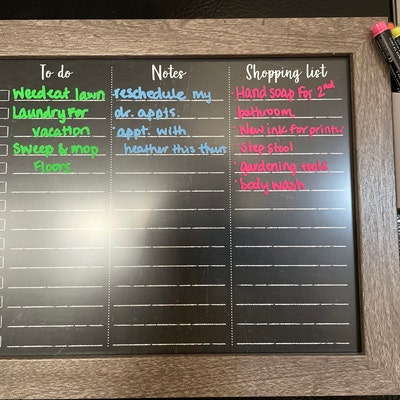 To do
Weedeat lawn
Laundry For
vacation
Sweep & mop
Floors
Notes
reschedule my
dr. appts.
appt. with
heather this thurs
Shopping list
Hand soap For 2nd
bathroom
New ink for printer
step stool
gardening tools
body wash